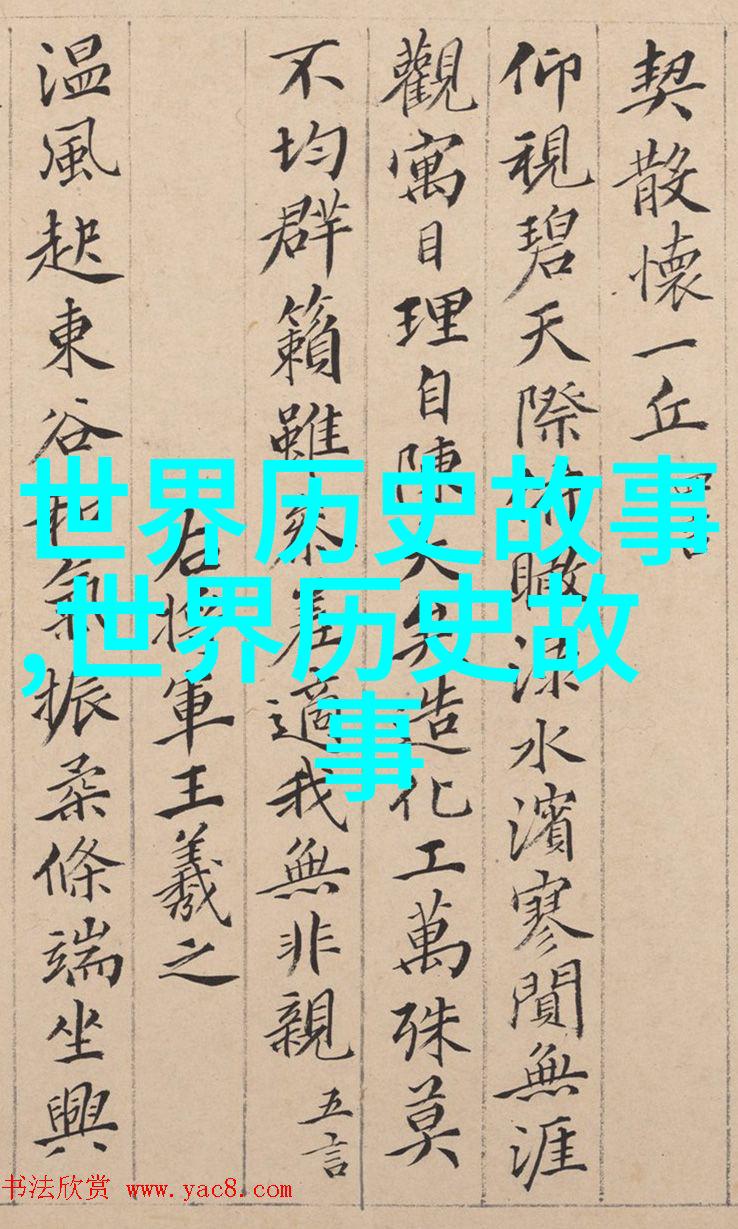 契散懷一丘
仰視碧天際俯瞰淥水濱寥閴無涯
觀寓目理自陳大矣造化工萬殊莫
不均群籟雖參差適我無非親 五言
右將軍王羲之
温風起東谷和氣振柔條端坐興
世界历史故事
,世界历史故
事
书法欣赏 www.yac8.com